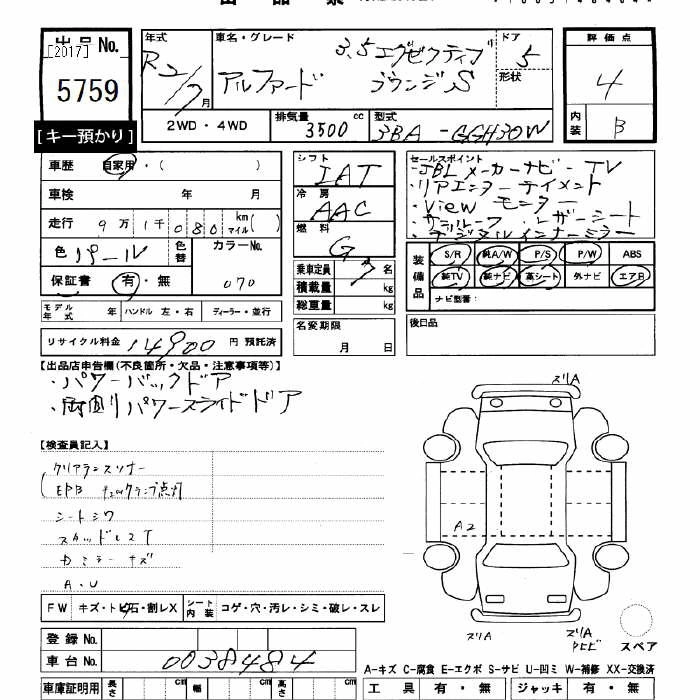 出品票
出品No.
[2017]
5759
[キー預かり]
年式
R2/7月
車名・グレード
3.5エグゼクティブ
アルファード ラウンジS
ドア
5
形状
評価点
4
内装
B
2WD・4WD
排気量
3500 cc
型式
3BA-GGH30W
車歴 自家用・( )
車検 年 月
走行 9万1千080 km マイル( )
色 パール 色替
カラーNo.
070
保証書 有・無
モデル年式 年 ハンドル 左・右 ディーラー・並行
リサイクル料金 14900 円 預託済
シフト
IAT
冷房
AAC
燃料
G
乗車定員 7 名
積載量 kg
総重量 kg
名変期限
月 日
セールスポイント
・JBLメーカーナビ・TV
・リアエンターテイメント
・Viewモニター
・サンルーフ・レザーシート
・デジタルインナーミラー
装備品
S/R 純A/W P/S P/W ABS
純TV 純ナビ 革シート 外ナビ エアB
ナビ型番:
後日品
【出品店申告欄(不良箇所・欠品・注意事項等)】
・パワーバックドア
・両側パワースライドドア
【検査員記入】
EPB チェックランプ点灯
シートシワ
カドミラーキズ
A・U
FW キズ・トビ石・割レX シート内装 コゲ・穴・汚レ・シミ・破レ・スレ
登録No.
車台No. 0038484
車庫証明用 長さ cm 幅 cm 高さ cm
スリA
A2
スリA
スリA
スペア
A-キズ C-腐食 E-エクボ S-サビ U-凹ミ W-補修 XX-交換済
工具 有・無 ジャッキ 有・無